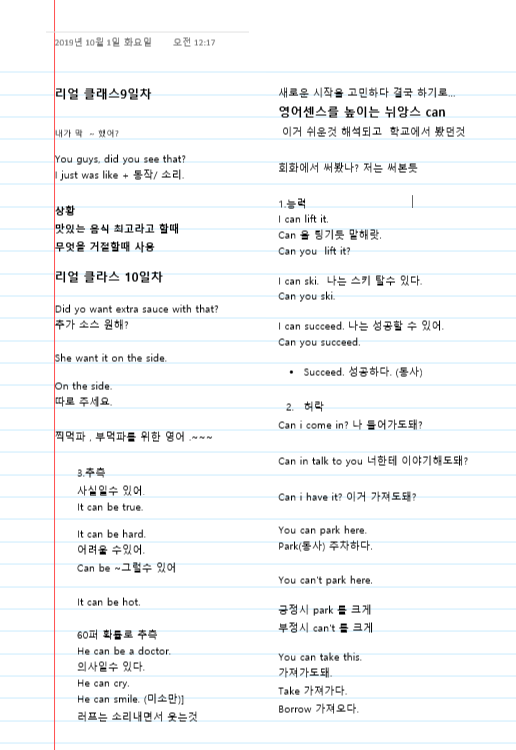 2019년 10월 1일 화요일 오전 12:17
리얼 클래스9일차
내가 막 ~ 했어?
You guys, did you see that?
I just was like + 동작/ 소리.
상황
맛있는 음식 최고라고 할때
무엇을 거절할때 사용
리얼 클라스 10일차
Did yo want extra sauce with that?
추가 소스 원해?
She want it on the side.
On the side.
따로 주세요.
찍먹파 . 부먹파를 위한 영어 .~~~
3.추측
사실일수 있어.
It can be true.
It can be hard.
어려울 수있어.
Can be ~그럴수 있어
It can be hot.
60퍼 확률로 추측
He can be a doctor.
의사일수 있다.
He can cry.
He can smile. (미소만)]
러프는 소리내면서 웃는것
새로운 시작을 고민하다 결국 하기로...
영어센스를 높이는 뉘앙스 can
이거 쉬운것 해석되고 학교에서 봤던것
회화에서 써봤나? 저는 써본듯
1.능력
I can lift it.
Can 을 튕기듯 말해랏.
Can you lift it?
I can ski. 나는 스키 탈수 있다.
Can you ski.
I can succeed. 나는 성공할 수 있어.
Can you succeed.
• Succeed. 성공하다. (동사)
2. 허락
Can i come in? 나 들어가도돼?
Can in talk to you 너한테 이야기해도돼?
Can i have it? 이거 가져도돼?
You can park here.
Park(동사) 주차하다.
You can't park here.
긍정시 park 를 크게
부정시 can't 를 크게
You can take this.
가져가도돼.
Take 가져가다.
Borrow 가져오다.